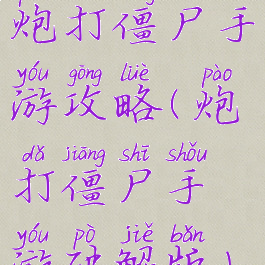 炮打僵尸手
yóu gōng lüè pào
游攻略(炮
dǎ jiāng shī shǒu
打僵尸手
yóu pò jiě bǎn
游破解版)